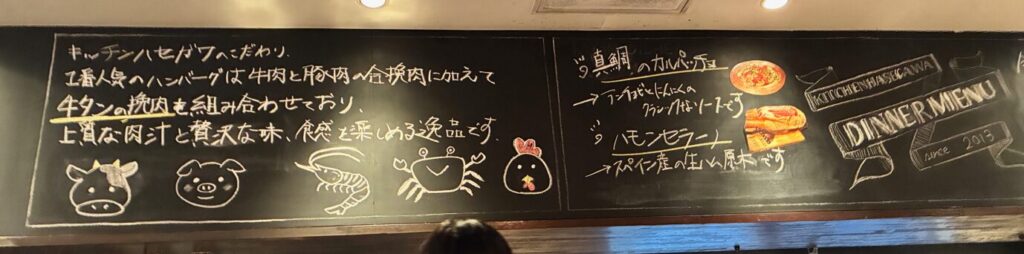 キッチンハセガワのこだわり.
1番人気のハンバーグは牛肉と豚肉の合挽肉に加えて
牛タンの挽肉を組み合わせており、
上質な肉汁と贅沢な味、食感を楽しめる逸品です.
真鯛のカルパッチョ
→アンチョビとにんにくの
ソースです
ハモンセラーノ
→スペイン産の生ハム原木です
KITCHEN HASEGAWA
DINNER MENU
since 2013